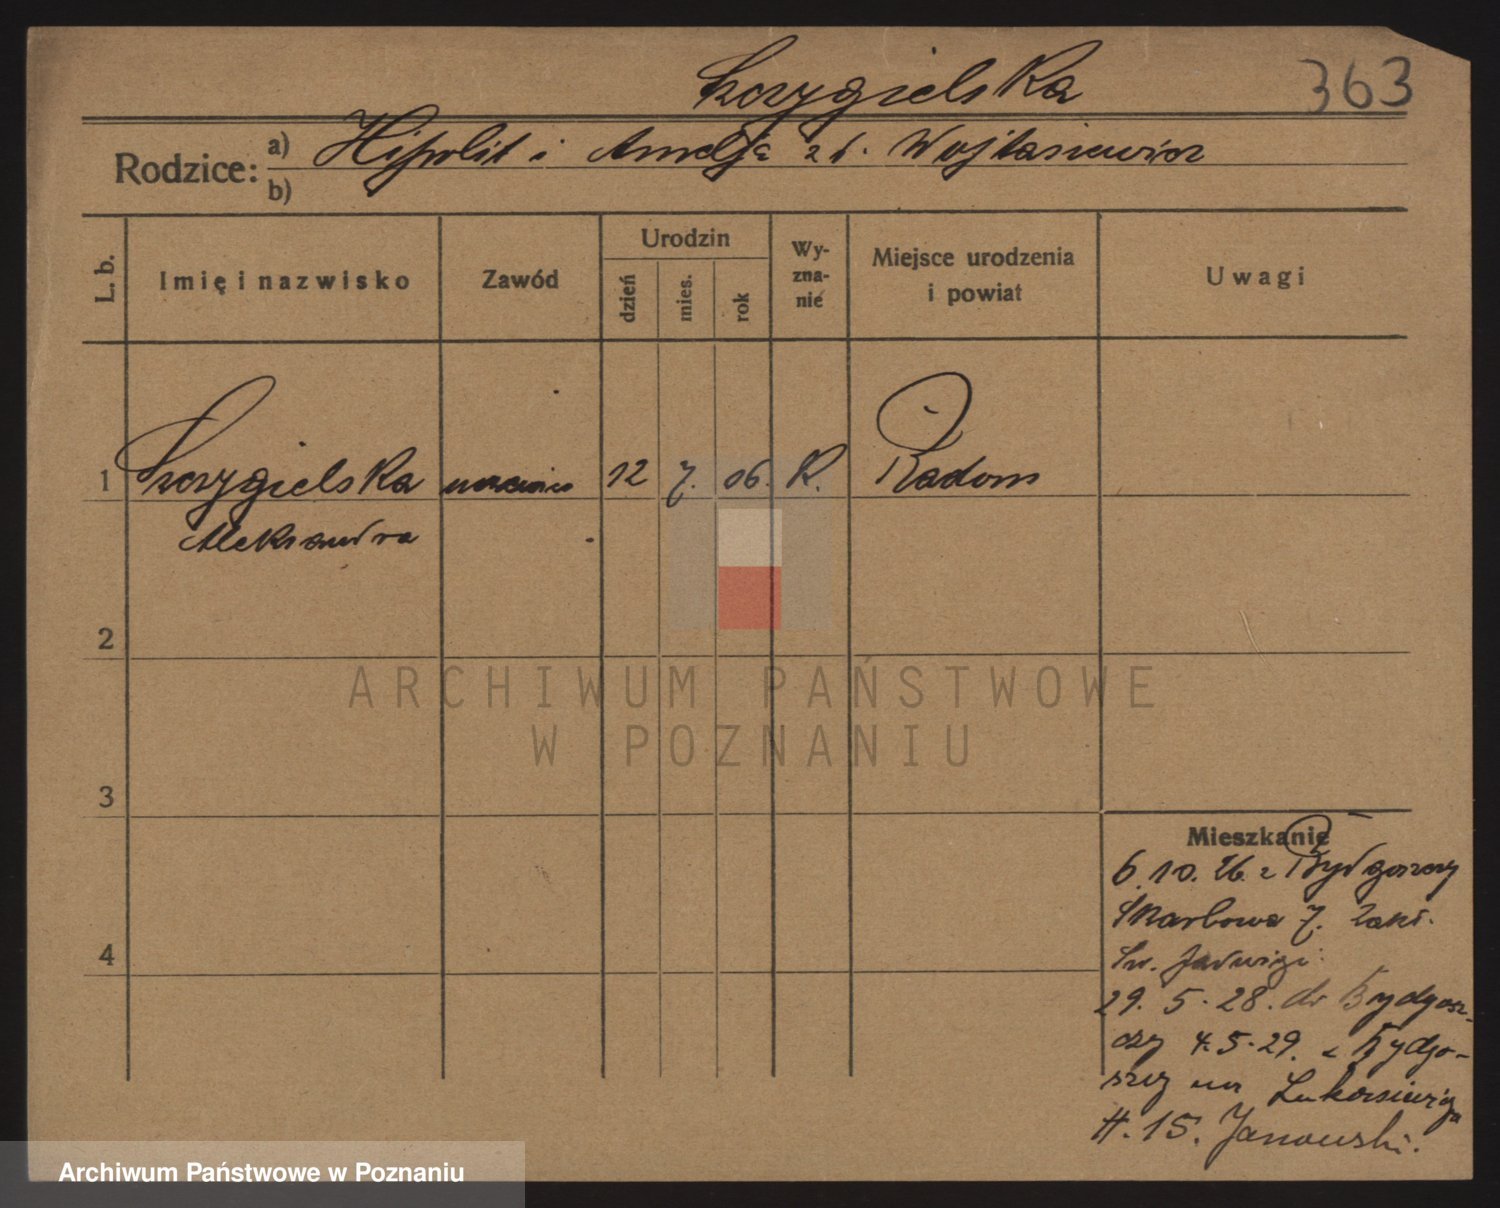 Szczygielska
363
Rodzice:
a) Hipolit i Amelja z d. Wojtasiewicz
b)
L. b.
Imię i nazwisko
Zawód
Urodzin
dzień
mies.
rok
Wy-
zna-
nie
Miejsce urodzenia
i powiat
Uwagi
1 Szczygielska 12 7. 06. K. Radom
Aleksandra
2
3
4
Mieszkanie
6.10.26. z Bydgoszczy
Skarbowa 7. Zakł.
Św. Jadwigi
29. 5. 28. do Bydgosz-
czy 4.5.29. z Bydgo-
szczy na Łukasiewicza
15. Janowski.
ARCHIWUM PAŃSTWOWE
W POZNANIU
Archiwum Państwowe w Poznaniu